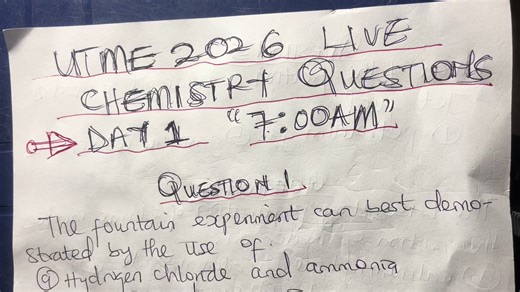 UTME 2026 LIVE
CHEMISTRY QUESTIONS
DAY 1 "7:00AM"
QUESTION 1
The fountain experiment can best demo-
strated by the use of.
(a) Hydrogen chloride and ammonia